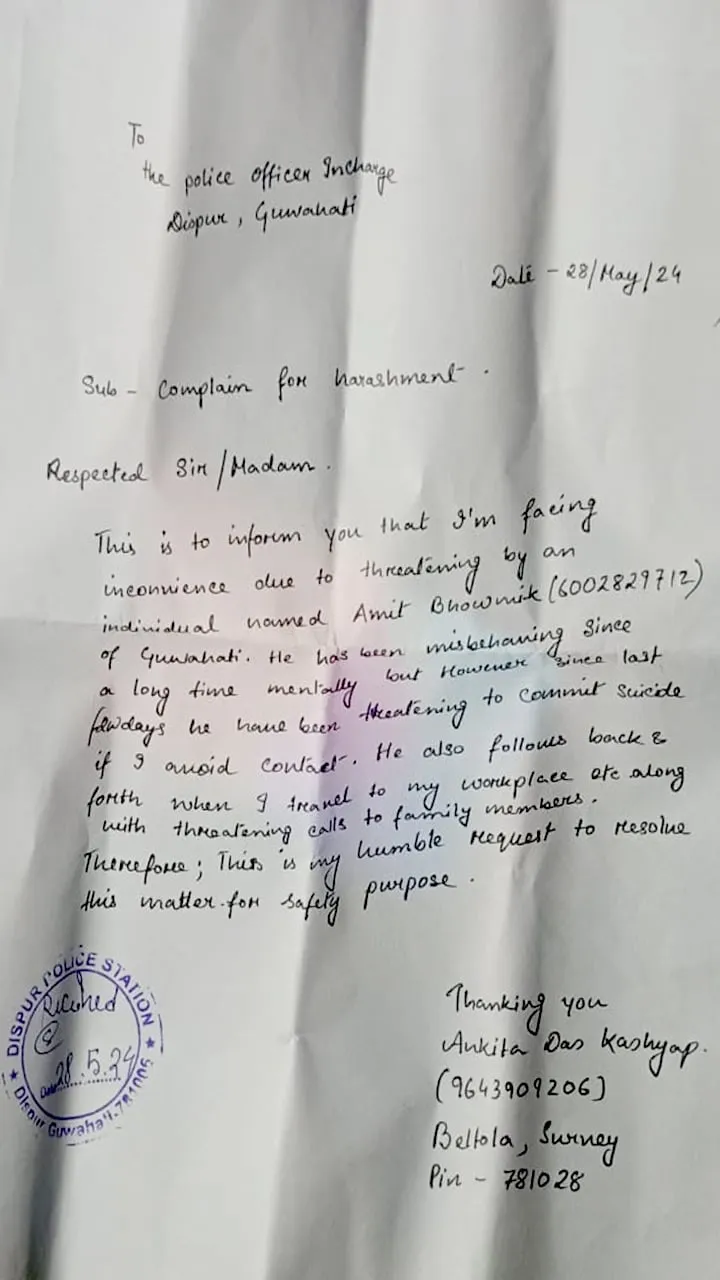 To
the police officer Incharge
Dispur, Guwahati
Date - 28/May/24
Sub - Complain for harashment.
Respected Sir/Madam.
This is to inform you that I'm facing
inconvience due to threatening by an
individual named Amit Bhowmik (6002829712)
of Guwahati. He has been misbehaving since
a long time mentally but However since last
fewdays he have been threatening to commit suicide
if I avoid contact. He also follows back &
forth when I travel to my workplace etc along
with threatening calls to family members.
Therefore; This is my humble request to resolve
this matter for safety purpose.
DISPUR POLICE STATION
Received
28.5.24
Dispur Guwahati-781006
Thanking you
Ankita Das Kashyap.
(9643909206)
Beltola, Survey
Pin - 781028